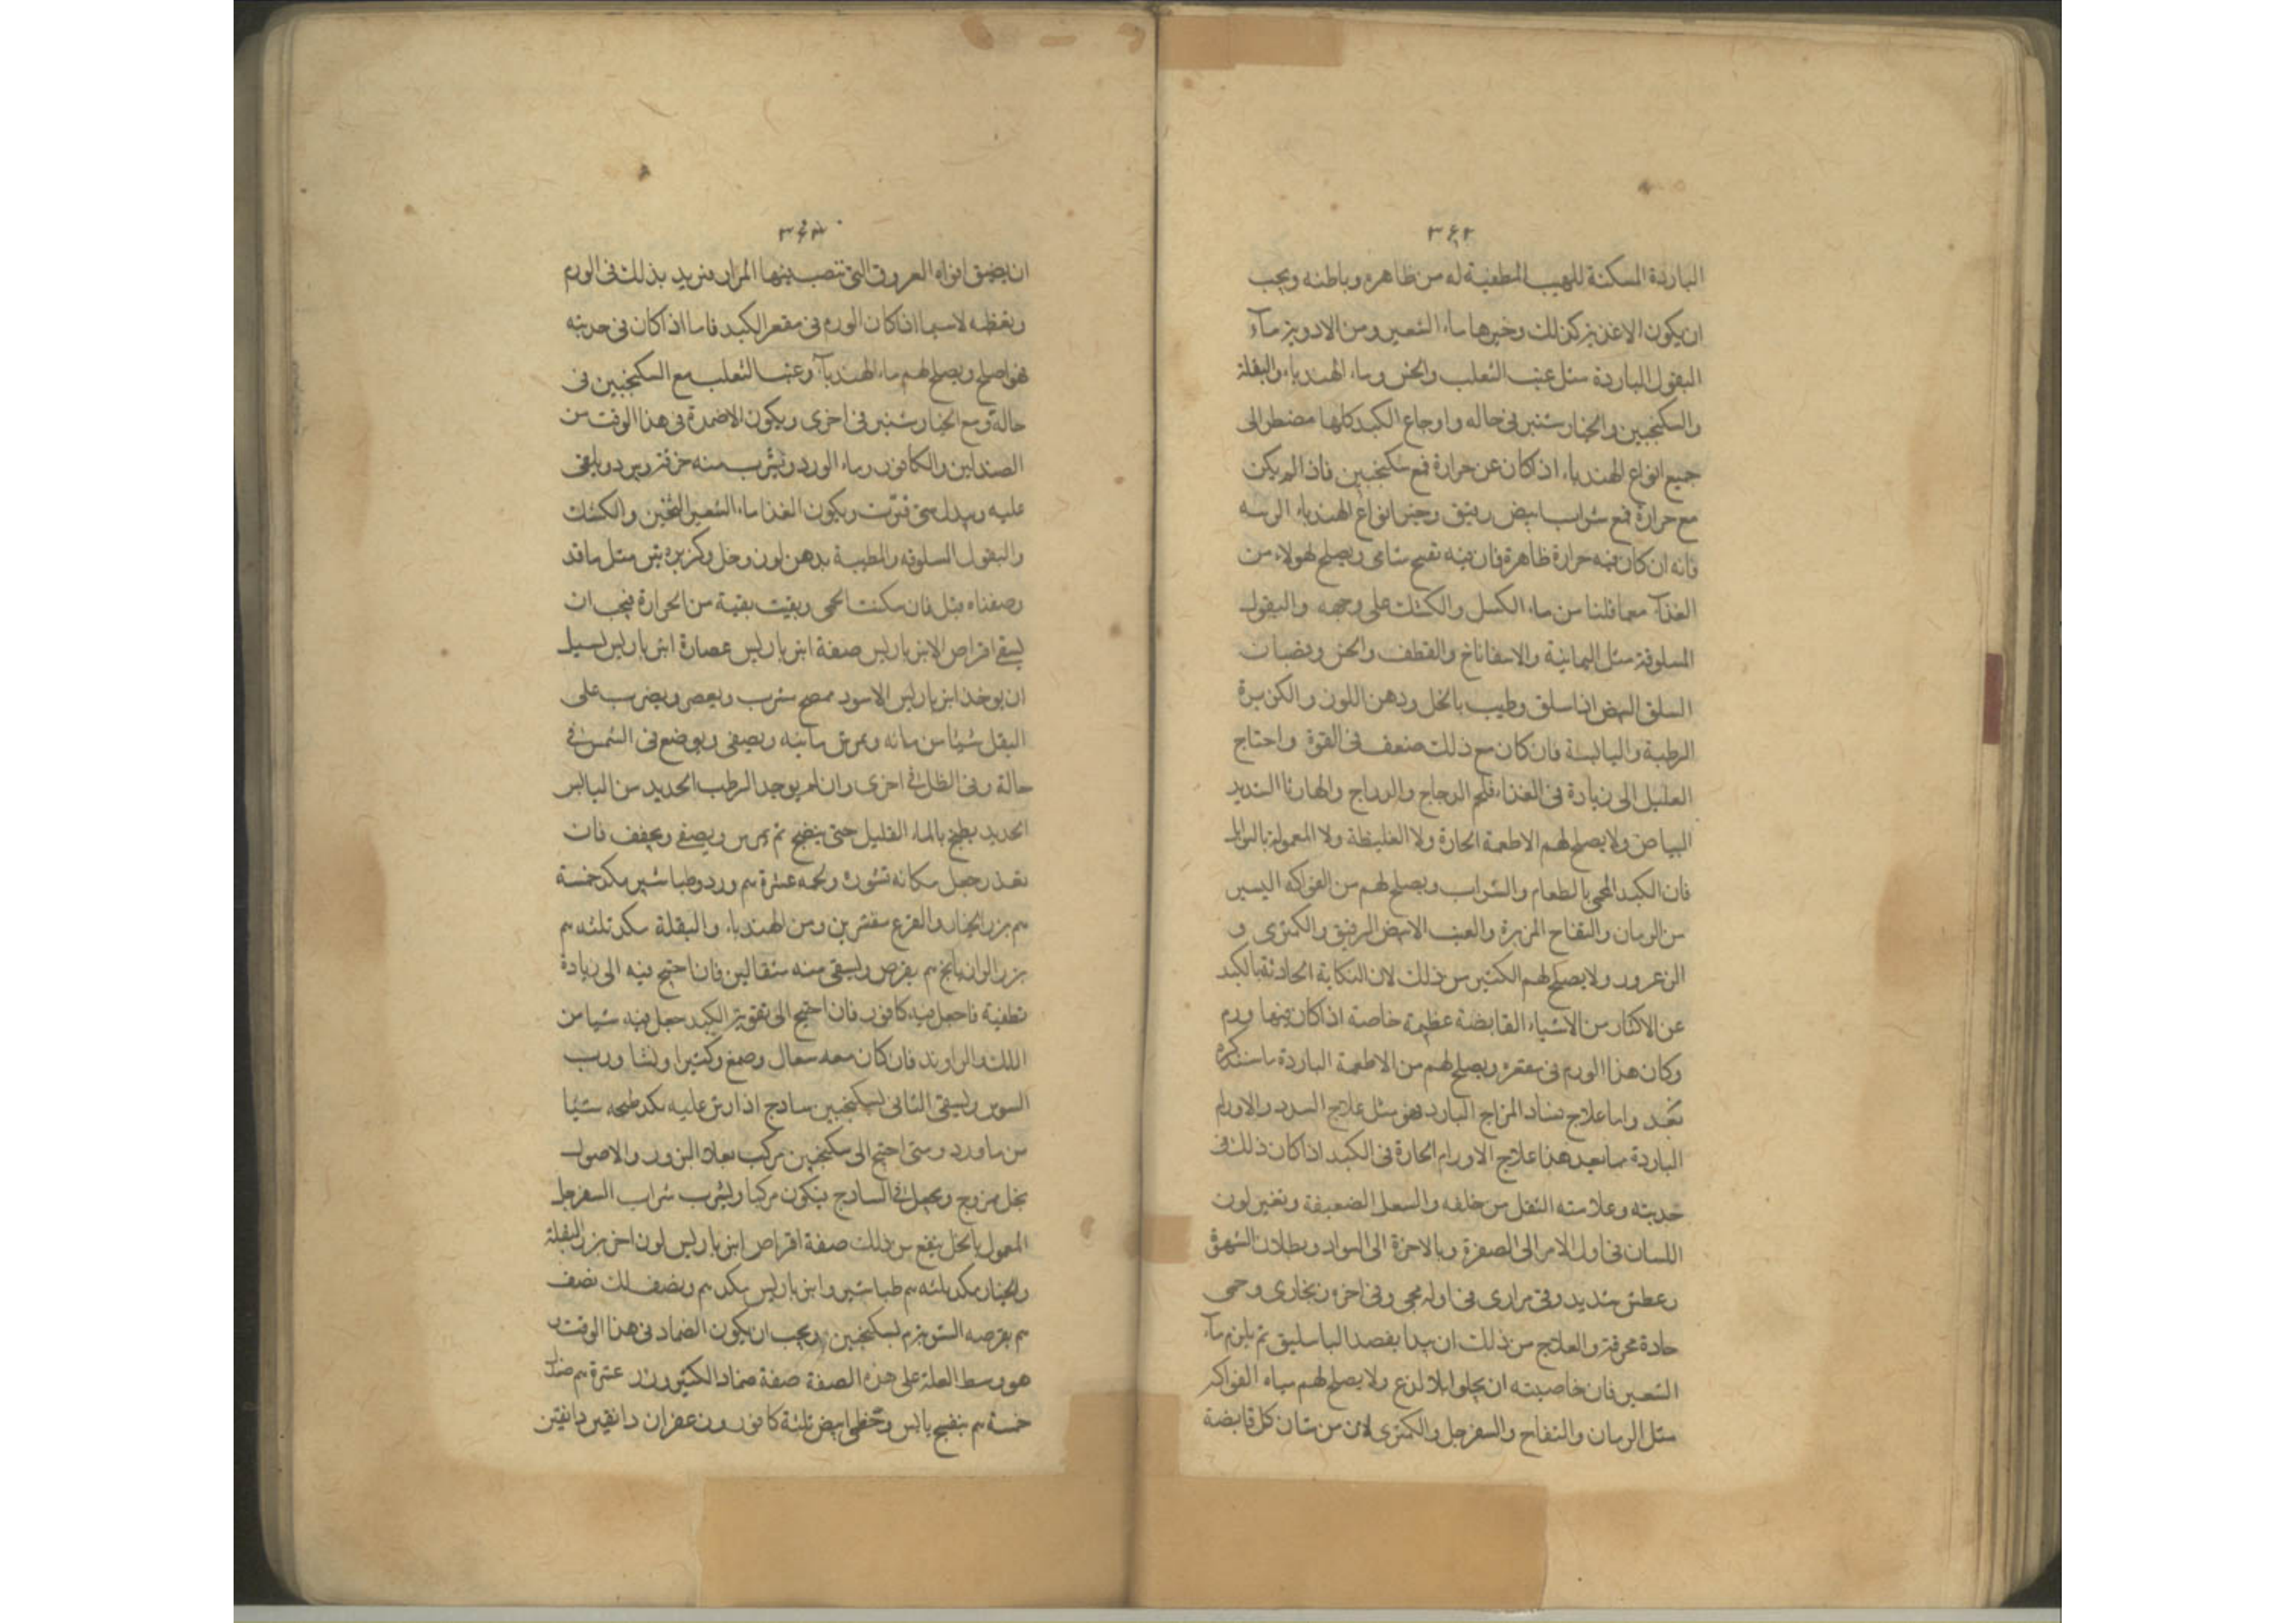 ٣٦٢
الباردة المسكنة للهيب المطفية له من ظاهره وباطنه ويجب
ان يكون الاغذية كذلك وخيرها ماء الشعير ومن الادوية مآء
البقول الباردة مثل عنب الثعلب والخس وماء الهندباء والبقلة
والسكنجبين والخيارشنبر فى حاله واوجاع الكبد كلها مضطر الى
جميع انواع الهندباء اذ كان عن حرارة فمع سكنجبين فاذا لم يكن
مع حرارة فمع شراب ابيض رقيق وخير انواع الهندباء
فانه ان كان فيه حرارة ظاهرة فان فيه تفتيح شافى ويصلح لهولاء من
الغذآ مما قلنا من ماء الكسك والكشك على وجهه والبقول
المسلوقة مثل اليمانية والاسفاناخ والقطف والخس وقضبان
السلق البيض اذا سلق وطيب بالخل ودهن اللوز والكزبرة
الرطبة واليابسة فان كان مع ذلك ضعف فى القوة واحتاج
العليل الى زيادة فى الغذاء فلحم الدجاج والدراج
البياض ولا يصلح لهم الاطعمة الحارة ولا الغليظة ولا المعمولة
فان الكبد المحمى بالطعام والشراب ويصلح لهم من الفواكه اليسير
من الرمان والتفاح المزة والعنب الابيض الرقيق والكمثرى و
الزعرور ولا يصلح لهم الكثير من ذلك لان النكاية الحادثة بالكبد
عن الاكثار من الاشياء القابضة عظيمة خاصة اذا كان فيها ورم
وكان هذا الورم فى مقعره ويصلح لهم من الاطعمة الباردة ما سنذكره
بعد واما علاج فساد المزاج البارد فهو مثل علاج السدد والاورام
الباردة مما بعد هذا علاج الاورام الحارة فى الكبد اذا كان ذلك فى
حدبته وعلامته الثقل من خلفه والسعال الضعيفة وتغير لون
اللسان فى اول الامر الى الصفرة وبالاخرة الى السواد وبطلان الشهوة
وعطش شديد وقى مرارى فى اوله محى وفى اخره زنجارى وحمى
حادة محرقة والعلاج من ذلك ان يبدا بفصد الباسليق ثم يلزم مآء
الشعير فان خاصيته ان يجلوا بلا لذع ولا يصلح لهم مياه الفواكه
مثل الرمان والتفاح والسفرجل والكمثرى لان من شان كل قابضة
٣٦٣
ان يضيق افواه العروق التى تنصب فيها المرار فيزيد بذلك فى الورم
ويعظمه لاسيما اذا كان الورم فى مقعر الكبد فاما اذا كان فى حدبته
فهو اصلح ويصلح لهم ماء الهندبآ وعنب الثعلب مع السكنجبين فى
حالة ومع الخيارشنبر فى اخرى ويكون الاضمدة فى هذا الوقت من
الصندلين والكافور وماء الورد ويشرب منه خرقة ويبرد ويلقى
عليه ويبدل متى فترت ويكون الغذا ماء الشعير الثخين والكشك
والبقول المسلوقه والمطيبة بدهن لوز وخل وكزبره يبس مثل ما قد
وصفناه قبل فان سكنت الحمى وبقيت بقية من الحرارة فيجب ان
يسقى اقراص الانبرباريس صفة انبرباريس عصارة انبرباريس
ان يوخذ انبرباريس الاسود ويعصر ويضرب على
الثفل شيئا من مائه ويمرس مائيه ويصفى ويوضع فى الشمس فى
حالة وفى الظل فى اخرى وان لم يوجد الرطب الحديد من اليابس
الحديد يطبخ بالماء القليل حتى ينضج ثم يمرس ويصفى ويجفف فان
تعذر جعل مكانه ولحمه عشرة م ورد وطباشير مكد خمسة
م بزر الخيار والقرع مقشرين ومن الهندباء والبقلة مكد ثلثه م
بزر الرازيانج م يقرص ويسقى منه مثقالين فان احتيج فيه الى زيادة
تطفية فاجعل فيه كافور فان احتيج الى تقوية الكبد جعل فيه شيا من
اللك والراوند فان كان معه سعال وصمغ وكثيرا ونشا ورب
السوس ويسقى الثانى بسكنجبين ساذج عليه مكد طبخه شيئا
من ماورد ومتى احتيج الى سكنجبين مركب البزور والاصول
بخل ممزوج ويجعل فى الساذج فيكون مركبا ويشرب شراب السفرجل
المعمول بالخل ينفع من ذلك صفة اقراص انبرباريس لون اخر بزر البقلة
والخيار مكد ثلثه م طباشير وانبرباريس مكد م ونصف لك نصف
م بقرصه بسكنجبين ويجب ان يكون الضماد فى هذا الوقت
هو وسط العلة على هذه الصفة صفة ضماد الكبد ورد عشرة م صندل
خمسة م بنفسج يابس وخطمى ابيض ثلثة كافور وزعفران دانقين دانقين